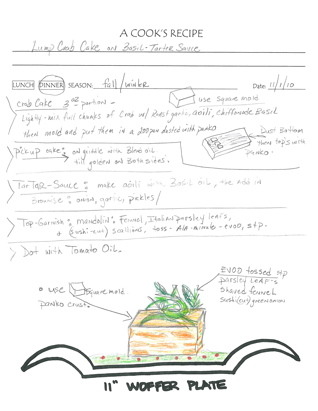 A COOK'S RECIPE
Lump Crab Cake on Basil-Tartar Sauce
LUNCH DINNER SEASON: fall/winter Date: 11/3/10
Crab Cake 3 oz portion -
use square mold
Lightly-mix full chunks of Crab w/ Roast garlic, aioli, chiffonade Basil
then mold and put them in a 200pan dusted with panko
Dust Bottom
then tops with
Panko.
Pickup cake: on griddle with Blend oil
till golden on Both sides.
TarTar-Sauce: make aioli with Basil oil, the add in
Brunoise: onion, garlic, pickles/
Top-Garnish: mandolin: Fennel, Italian parsley leafs,
(Sushi-cut) scallions, toss - Ala-minute - evoo, s+p.
Dot with Tomato Oil.
use square mold
panko crust.
EVOO tossed s+p
parsley LEAF-s
Shaved fennel
Sushi(cut) green onion
11" WOFFER PLATE